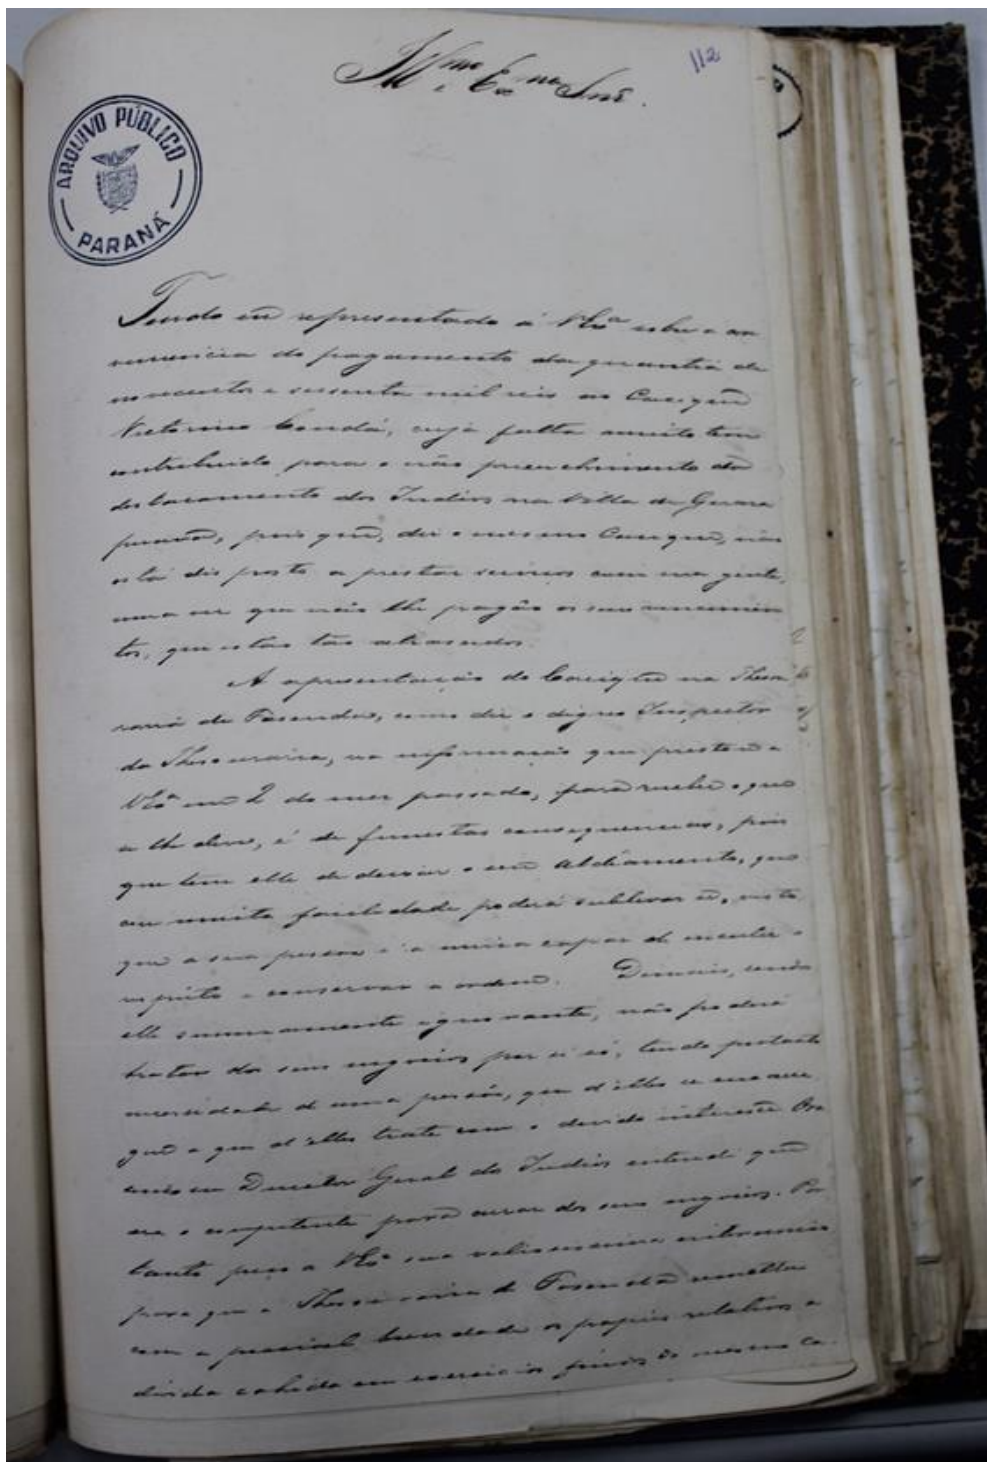 112
Illmo e Exmo Snr.
ARQUIVO PÚBLICO
PARANÁ
Tendo eu representado á VExa sobre a
do pagamento da quantia de
novecentos e sessenta mil reis ao Cacique
Victorino Condá, cuja falta muito tem
contribuido para o não preenchimento do
destacamento dos Indios na Villa de Guara
puava, pois que, diz o mesmo Cacique, não
está disposto a prestar serviços com sua gente,
uma vez que não lhe pagão os seus vencimen
tos, que estão tão atrasados.
A apresentação do Cacique na Thesou
raria de Fasenda, como diz o digno Inspector
da Thesouraria, na informação que prestou a
VExa em 2 do mez passado, para receber o que
se lhe deve, é de funestas consequencias, pois
que tem elle de deixar o seu Aldiamento, que
com muita facilidade poderá sublevar se, visto
que a sua pessoa é a unica capaz de manter o
respeito e conservar a ordem. Demais, sendo
elle summamente ignorante, não poderá
tratar dos seus negocios por si só, tendo portanto
necessidade de uma pessôa, que d'elles se encarre
gue e que d'elles trate com o devido interesse
como Director Geral dos Indios entendi que
era o competente para curar dos seus negocios. Por
tanto peço a VExa sua valiosissima intervenção
para que a Thesouraria de Fasenda remetta
com a possivel brevidade os papeis relativos a
divida cahida em exercicios findos do mesmo Ca